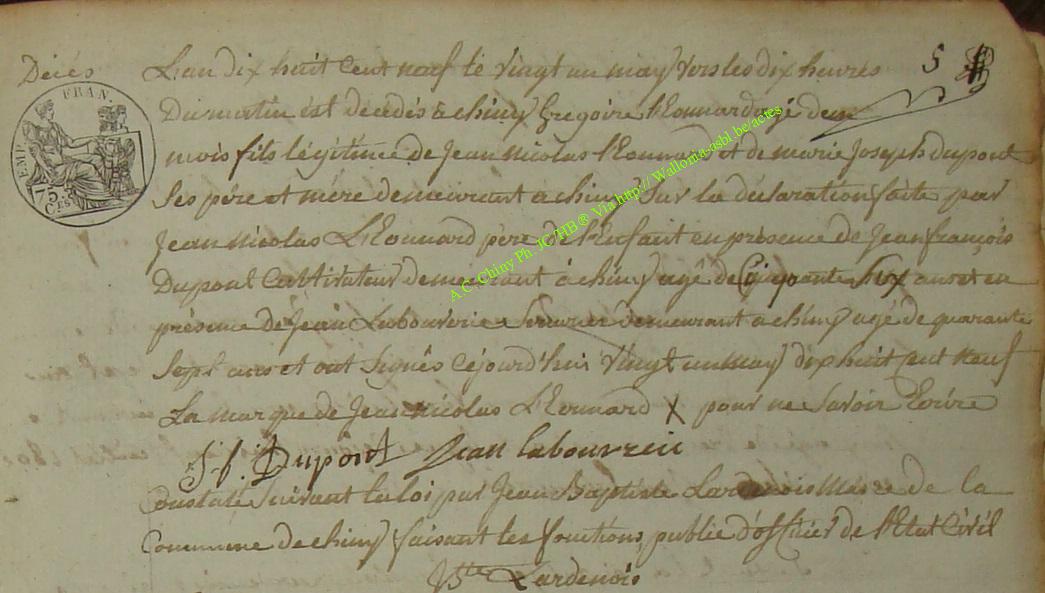 Décés
L'an dix huit Cent neuf le vingt un may vers les dix heures
5
Du matin est decedés a chiny Gregoire L'Eonnard agé de
mois fils légitime de Jean Nicolas L'Eonnard et de marie Joseph dupont
Ses pére et mére demeurant a chiny Sur la déclaration faite par
Jean Nicolas L'Eonnard pére de l'Enfant en présence de Jean françois
Dupont Cultivateur demeurant á chiny agé de Cinquante Six ans et en
présence de Jean Labouverie Serurier demeurant a chiny agé de quarante
Sept ans et ont Signés Cejourd'hui Vingt un may dix huit Cent neuf
La marque de Jean nicolas L'Eonnard X pour ne Savoir Ecrire
J f: Dupont Jean labouverie
Constaté Suivant la loi par Jean Baptiste Lardenois Maire de la
Commune de chiny faisant les fonctions public d'officier de l'Etat Civil
JBte Lardenois
EMP. FRAN.
75
CES
A.C. Chiny Ph. JC HB® Via http:// Walloma-asbl.be/actes